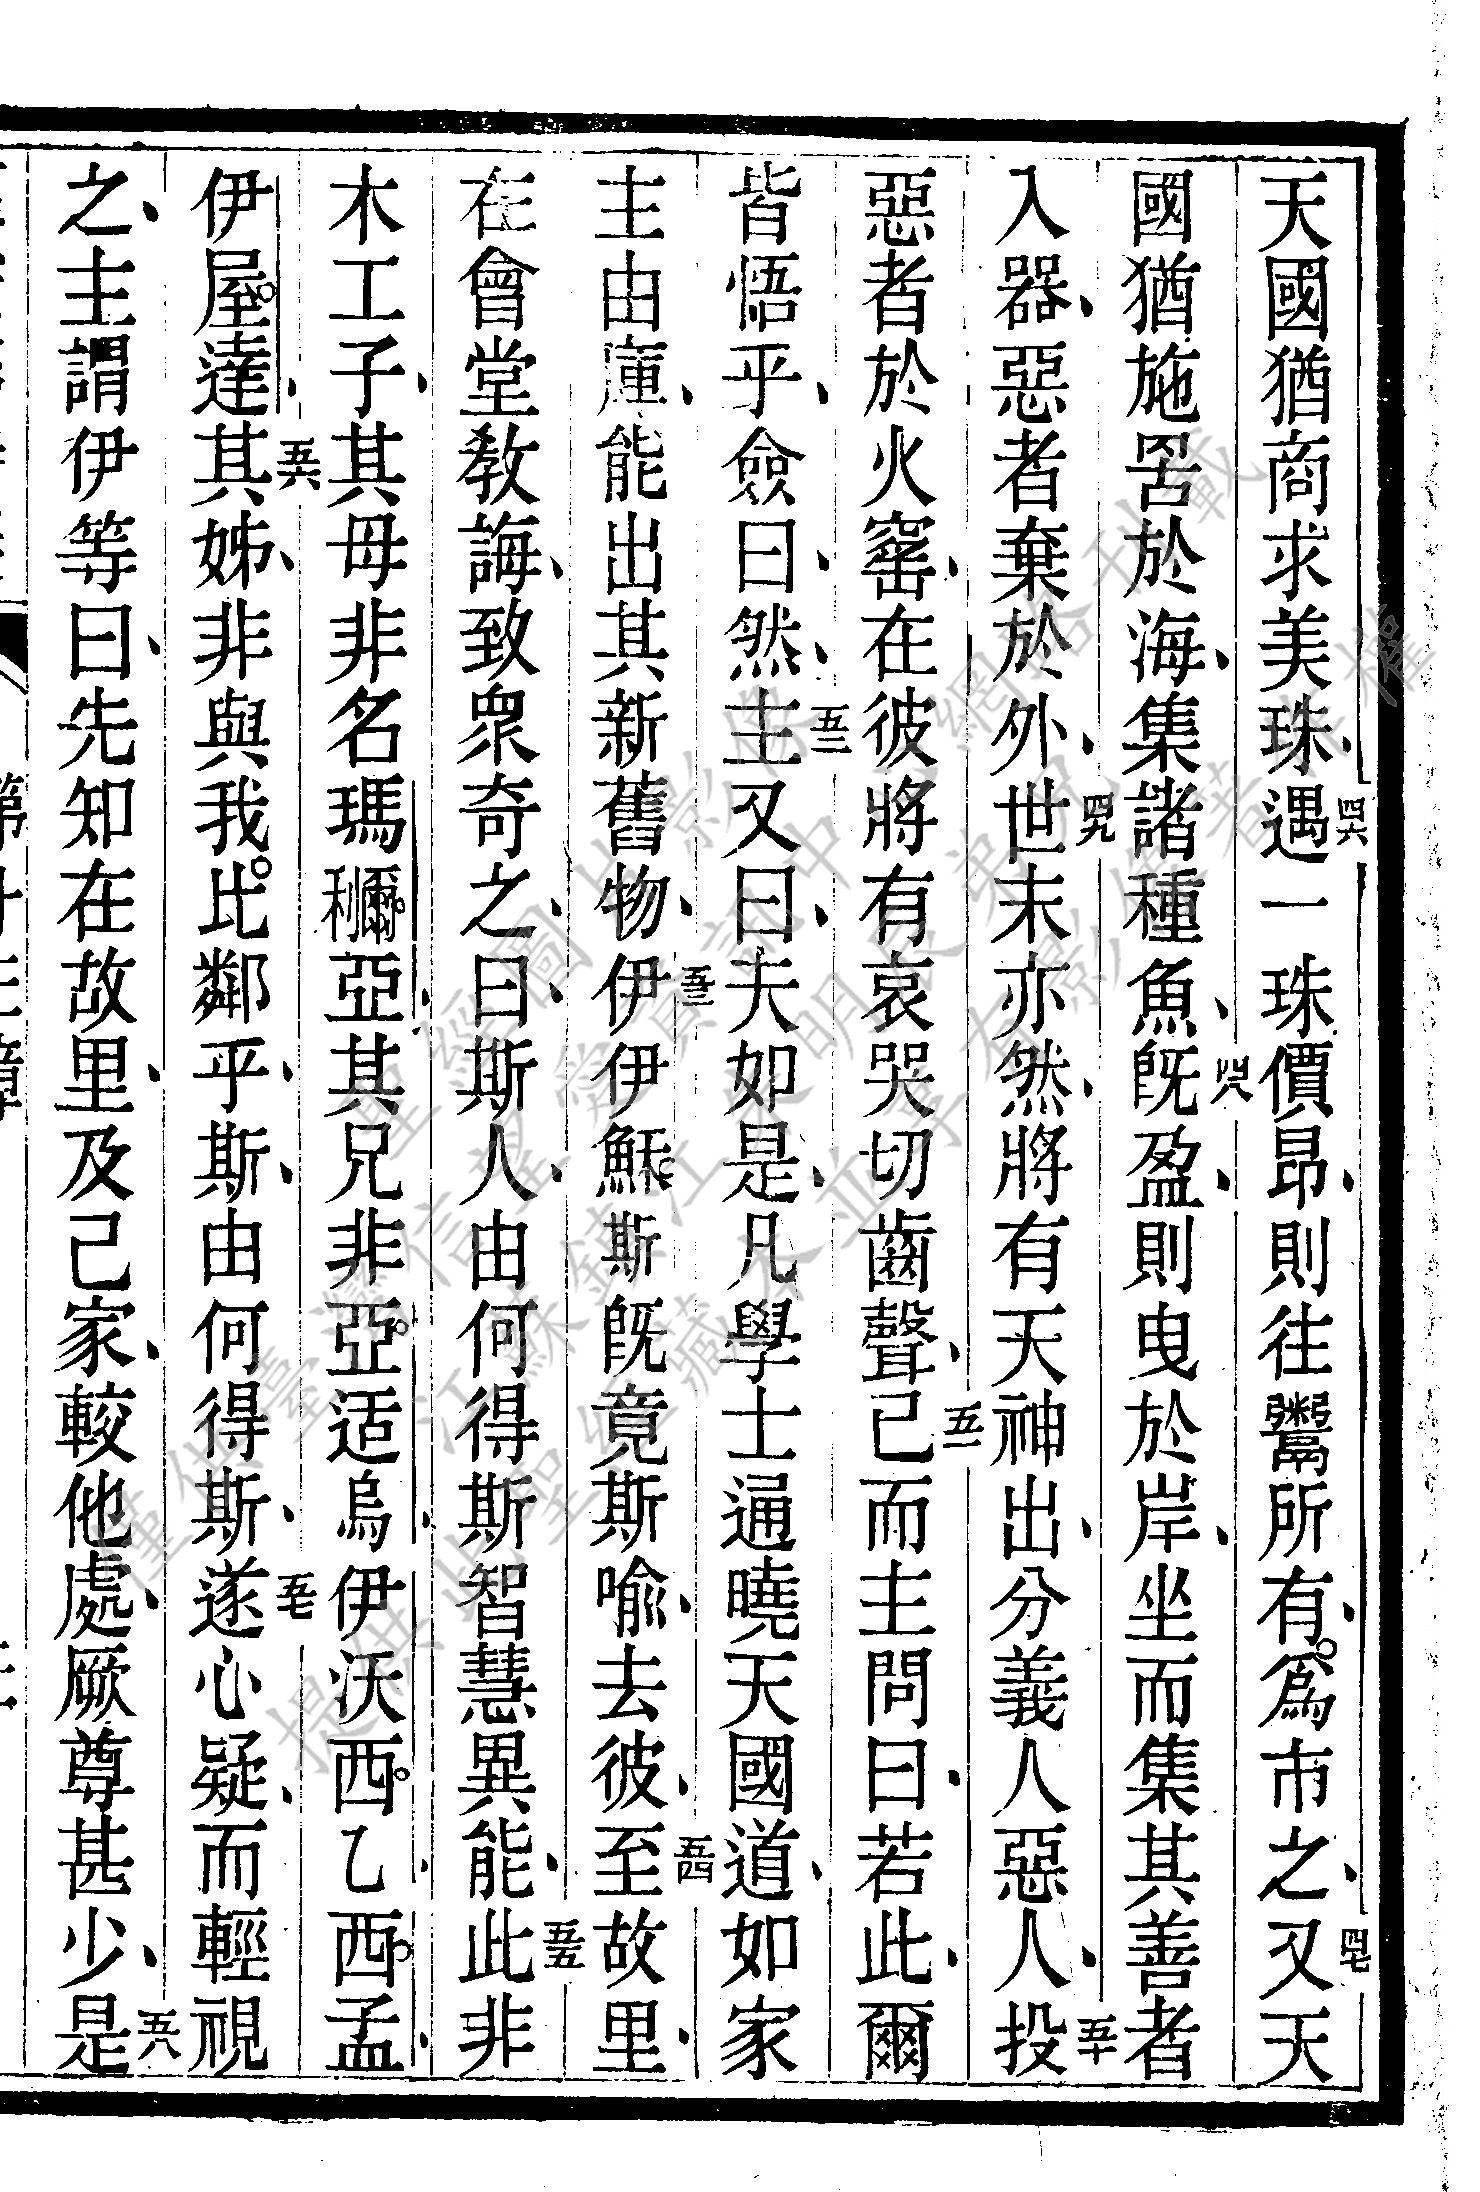 天國猶商求美珠、四六遇一珠價昂、則往鬻所有、爲市之、四七又天
國猶施罟於海、集諸種魚、四八旣盈、則曳於岸、坐而集其善者
入器、惡者棄於外、四九世末亦然、將有天神出、分義人惡人、五十投
惡者於火窰、在彼將有哀哭切齒聲、五一已而主問曰、若此、爾
皆悟乎、僉曰、然、五二主又曰、夫如是、凡學士通曉天國道、如家
主由庫、能出其新舊物、五三伊伊穌斯旣竟斯喻、去彼、五四至故里、
在會堂教誨、致衆奇之、曰、斯人、由何得斯智慧異能、五五此非
木工子、其母非名瑪利彌亞、其兄非亞适烏、伊沃西乙、西孟、
伊屋達、五六其姊、非與我比鄰乎、斯、由何得斯、五七遂心疑、而輕視
之、主謂伊等曰、先知在故里、及己家、較他處、厥尊甚少、五八是